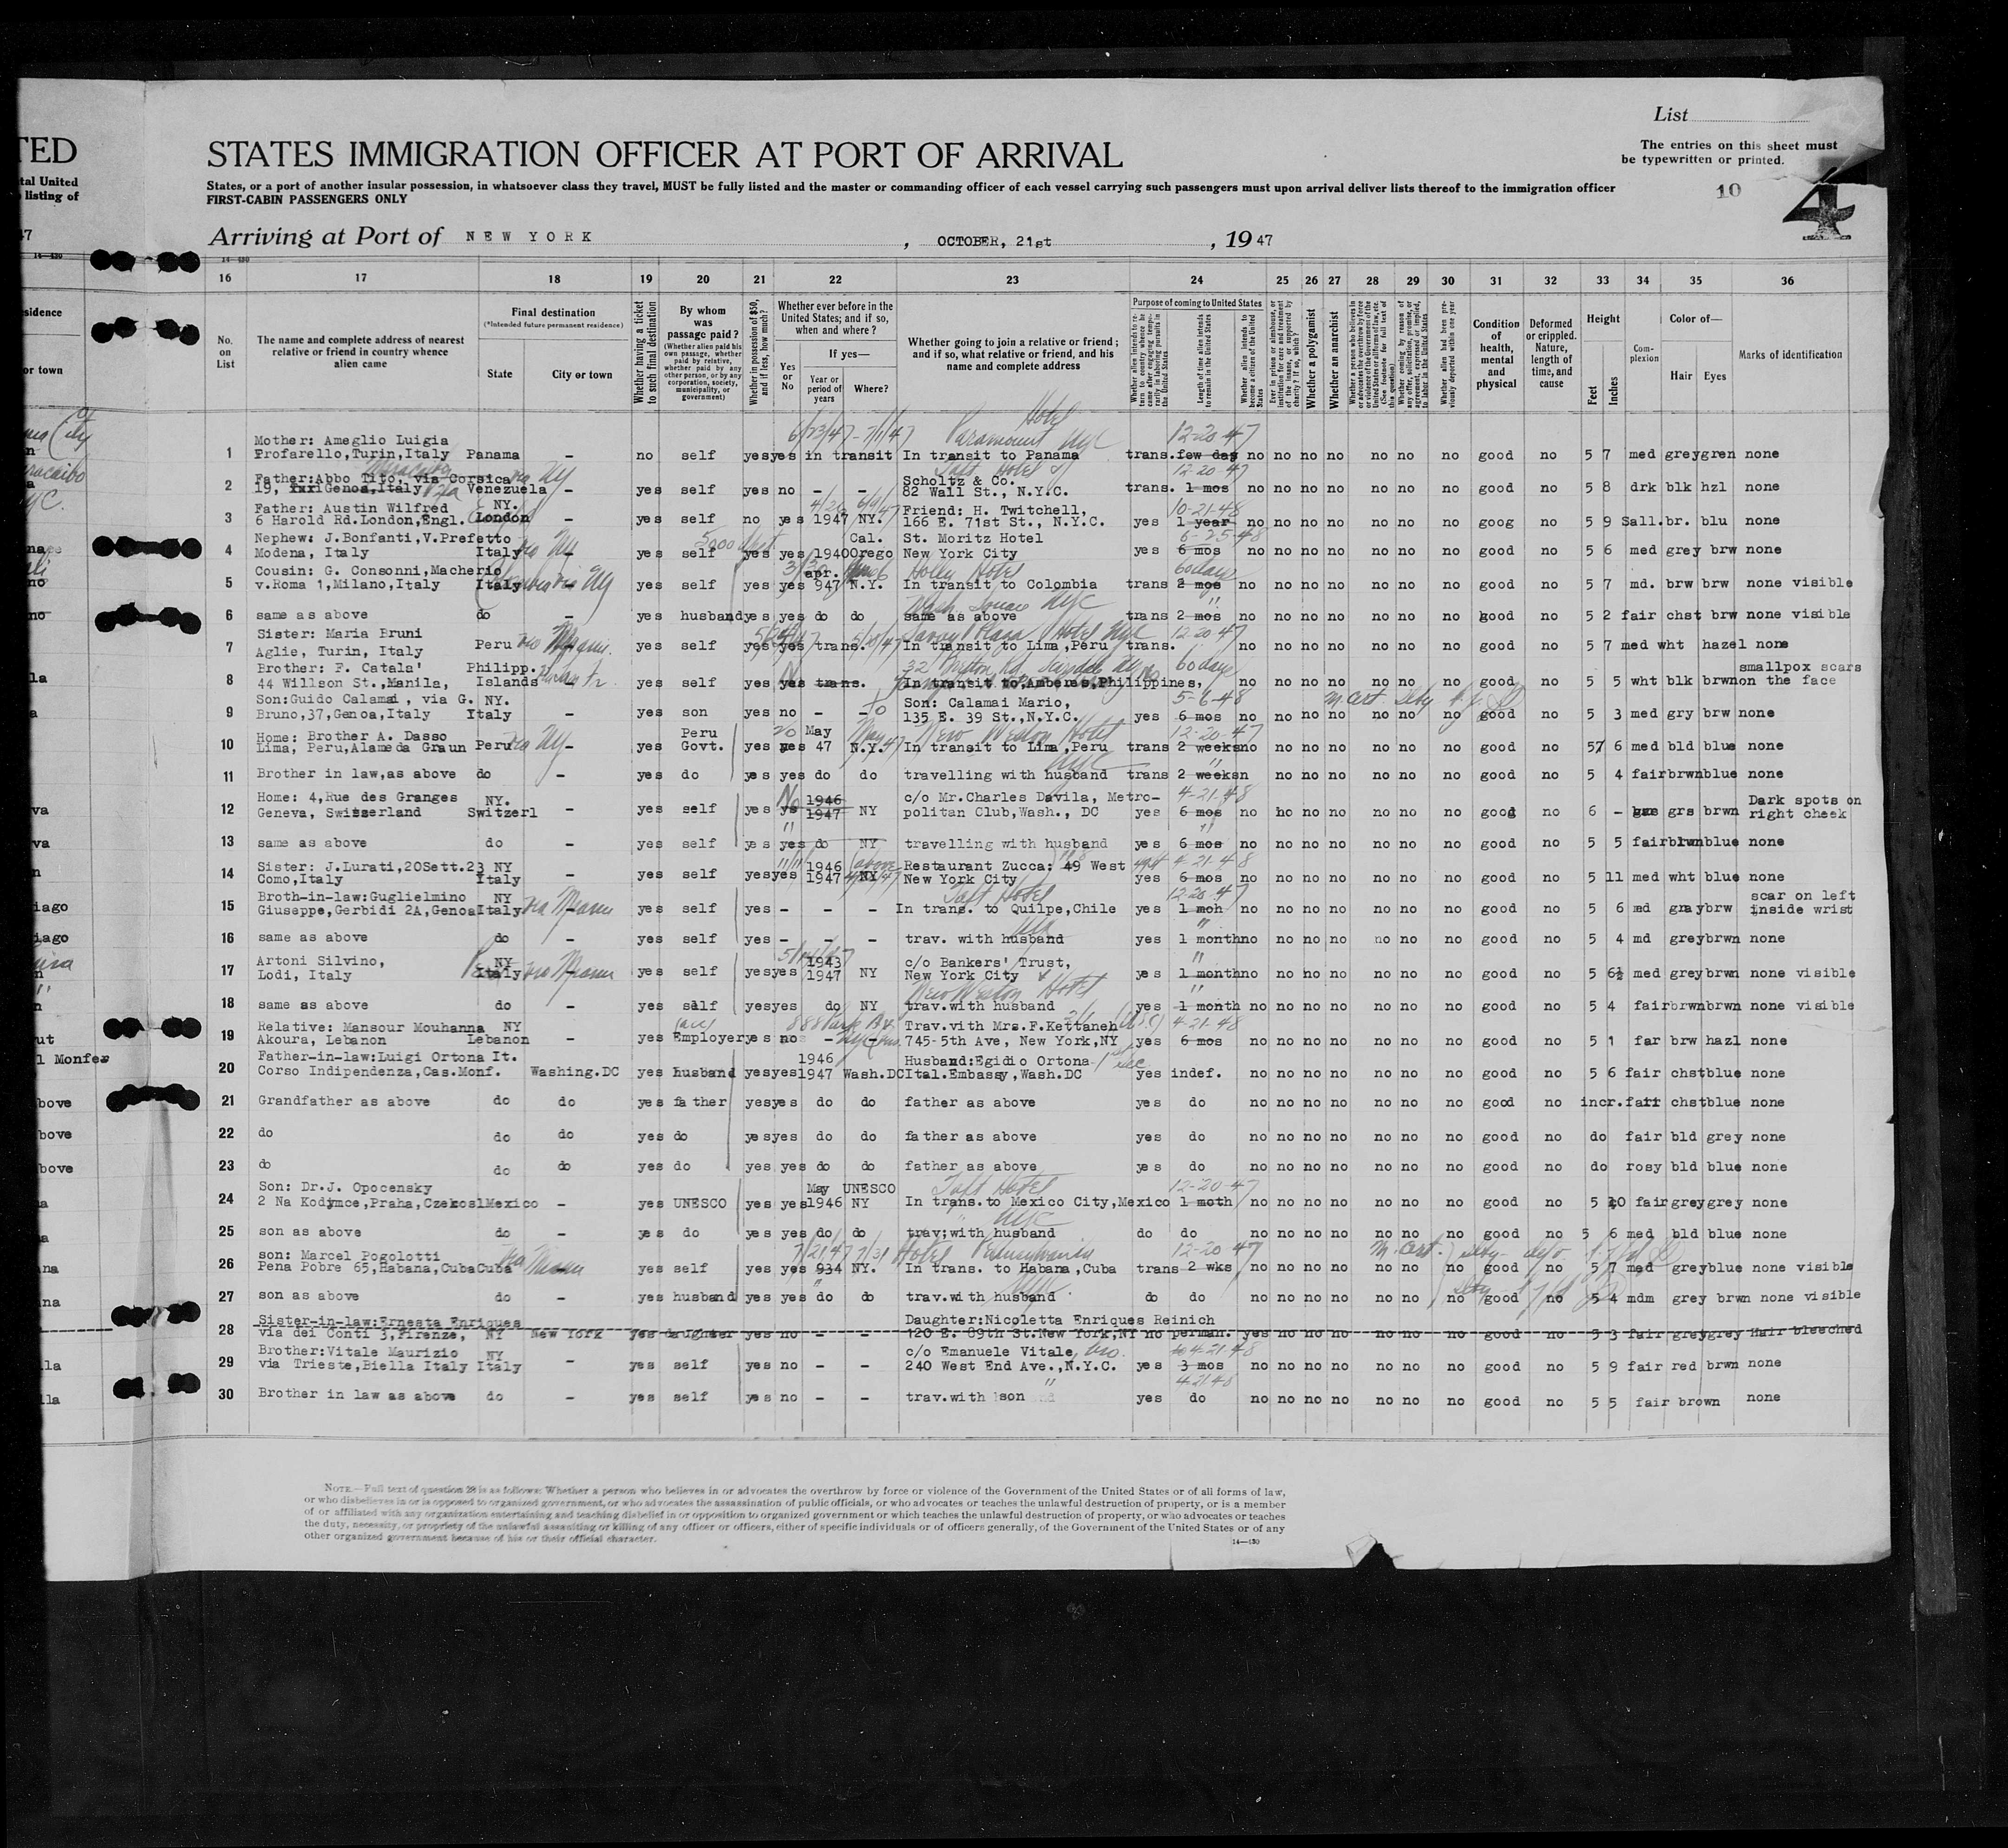 TED
tal United
listing of
47
14—430
List
The entries on this sheet must
be typewritten or printed.
10
4
STATES IMMIGRATION OFFICER AT PORT OF ARRIVAL
States, or a port of another insular possession, in whatsoever class they travel, MUST be fully listed and the master or commanding officer of each vessel carrying such passengers must upon arrival deliver lists thereof to the immigration officer
FIRST-CABIN PASSENGERS ONLY
Arriving at Port of NEW YORK , OCTOBER, 21st , 1947
14—430
16 17 18 19 20 21 22 23 24 25 26 27 28 29 30 31 32 33 34 35 36
No. on List
The name and complete address of nearest relative or friend in country whence alien came
Final destination
(*Intended future permanent residence)
State
City or town
Whether having a ticket to such final destination
By whom was passage paid?
(Whether alien paid his own passage, whether paid by relative, whether paid by any other person, or by any corporation, society, municipality, or government)
Whether in possession of $50, and if less, how much?
Whether ever before in the United States; and if so, when and where?
Yes or No
If yes—
Year or period of years
Where?
Whether going to join a relative or friend; and if so, what relative or friend, and his name and complete address
Purpose of coming to United States
Length of time alien intends to remain in the United States
Whether alien intends to become a citizen of the United States
Whether a polygamist
Whether an anarchist
Condition of health, mental and physical
Deformed or crippled. Nature, length of time, and cause
Height
Feet
Inches
Complexion
Color of—
Hair
Eyes
Marks of identification
6/23/47-7/1/47 Paramount Hotel NYC 12-20-47
Mother: Ameglio Luigia
1 Profarello,Turin,Italy Panama - no self yes yes in transit In transit to Panama trans. few das no no no no no no no good no 5 7 med grey gren none
Taft Hotel 12-20-47
Father:Abbo Tito, via Corsica via NY Scholtz & Co.
2 19, Genoa,Italy Venezuela - yes self yes no - - 82 Wall St., N.Y.C. trans. 1 mos no no no no no no no good no 5 8 drk blk hzl none
Father: Austin Wilfred NY. Friend: H. Twitchell, 10-21-48
3 6 Harold Rd.London,Engl. London - yes self no yes 1947 NY. 166 E. 71st St., N.Y.C. yes 1 year no no no no no no no goog no 5 9 Sall.br. blu none
Nephew: J.Bonfanti,V.Prefetto Cal. St. Moritz Hotel 6-25-48
4 Modena, Italy Italy - yes self yes yes 1940 Orego New York City yes 6 mos no no no no no no no good no 5 6 med grey brw none
Cousin: G. Consonni,Macherio apr. Holly Hotel 60 days
5 v.Roma 1,Milano,Italy Italy via NY yes self yes yes 947 N.Y. In transit to Colombia trans 2 mos no no no no no no no good no 5 7 md. brw brw none visible
Wash. Square NYC "
6 same as above do - yes husband yes yes do do same as above trans 2 mos no no no no no no no good no 5 2 fair chst brw none visible
Sister: Maria Bruni Savoy Plaza Hotel NYC 12-20-47
7 Aglie, Turin, Italy Peru via Miami yes self yes yes trans. In transit to Lima,Peru trans. no no no no no no no good no 5 7 med wht hazel none
Brother: F. Catala' Philipp. 60 days smallpox scars
8 44 Willson St.,Manila, Islands - yes self yes yes trans. In transit to,Amberes,Philippines, no no no no no no no good no 5 5 wht blk brwn on the face
Son:Guido Calamai, via G. NY. Son: Calamai Mario, 5-6-48
9 Bruno,37,Genoa,Italy Italy - yes son yes no - - 135 E. 39 St.,N.Y.C. yes 6 mos no no no no no no no good no 5 3 med gry brw none
Home: Brother A. Dasso Peru May New Weston Hotel 12-20-47
10 Lima, Peru,Alameda Graun Peru via NY - yes Govt. yes yes 47 N.Y. In transit to Lima,Peru trans 2 weeks no no no no no no no good no 57 6 med bld blue none
NYC "
11 Brother in law,as above do - yes do yes yes do do travelling with husband trans 2 weeks n no no no no no no good no 5 4 fair brwn blue none
Home: 4,Rue des Granges NY. No 1946 c/o Mr.Charles Davila, Metro- 4-21-48 Dark spots on
12 Geneva, Switserland Switzerl - yes self yes ys 1947 NY politan Club,Wash., DC yes 6 mos no ho no no no no no good no 6 - grs brwn right cheek
13 same as above do - yes self yes yes do NY travelling with husband yes 6 mos no no no no no no no good no 5 5 fair brwn blue none
Sister: J.Lurati,20Sett.23 NY 1946 Restaurant Zucca: 49 West 4-21-48
14 Como,Italy Italy - yes self yes yes 1947 NY New York City yes 6 mos no no no no no no no good no 5 11 med wht blue none
Broth-in-law:Guglielmino NY Taft Hotel 12-20-47 scar on left
15 Giuseppe,Gerbidi 2A,Genoa Italy via Miami yes self yes - - - In trans. to Quilpe,Chile yes 1 moh no no no no no no no good no 5 6 md gray brw inside wrist
NYC "
16 same as above do - yes self yes - - - trav. with husband yes 1 month no no no no no no no good no 5 4 md grey brwn none
Artoni Silvino, NY 1943 c/o Bankers' Trust, "
17 Lodi, Italy Italy via Miami yes self yes yes 1947 NY New York City yes 1 month no no no no no no no good no 5 6½ med grey brwn none visible
New Weston Hotel "
18 same as above do - yes self yes yes do NY trav.with husband yes 1 month no no no no no no no good no 5 4 fair brwn brwn none visible
Relative: Mansour Mouhanna NY 888 Park Av. Trav.vith Mrs.F.Kettaneh 4-21-48
19 Akoura, Lebanon Lebanon - yes Employer yes no - - 745-5th Ave, New York,NY yes 6 mos no no no no no no no good no 5 1 far brw hazl none
Father-in-law:Luigi Ortona It. 1946 Husband:Egidio Ortona
20 Corso Indipendenza,Cas.Monf. Washing.DC yes husband yes yes 1947 Wash.DC Ital.Embassy,Wash.DC yes indef. no no no no no no no good no 5 6 fair chst blue none
21 Grandfather as above do do yes father yes yes do do father as above yes do no no no no no no no good no incr. fair chst blue none
22 do do do yes do yes yes do do father as above yes do no no no no no no no good no do fair bld grey none
23 do do do yes do yes yes do do father as above yes do no no no no no no no good no do rosy bld blue none
Son: Dr.J. Opocensky May UNESCO Taft Hotel 12-20-47
24 2 Na Kodymce,Praha,Czekosl Mexico - yes UNESCO yes yes 1946 NY In trans.to Mexico City,Mexico 1 moth no no no no no no no good no 5 10 fair grey grey none
NYC
25 son as above do - yes do yes yes do do trav;with husband do do no no no no no no no good no 5 6 med bld blue none
son: Marcel Pogolotti via Miami 7/21/47 7/31 Hotel Pennsylvania 12-20-47
26 Pena Pobre 65,Habana,Cuba Cuba - yes self yes yes 934 NY. In trans. to Habana,Cuba trans 2 wks no no no no no no no good no 5 7 med grey blue none visible
NYC
27 son as above do - yes husband yes yes do do trav.with husband do do no no no no no no no good no 5 4 mdm grey brwn none visible
Sister-in-law:Ernesta Enriques Daughter:Nicoletta Enriques Reinich
28 via dei Conti 3,Firenze, NY New York yes daughter yes no - - 120 E. 89th St.New York,NY no perman. yes no no no no no no good no 5 3 fair grey grey Hair bleached
Brother:Vitale Maurizio NY c/o Emanuele Vitale, bro. 4-21-48
29 via Trieste,Biella Italy Italy - yes self yes no - - 240 West End Ave.,N.Y.C. yes 3 mos no no no no no no no good no 5 9 fair red brwn none
" 4-21-48
30 Brother in law as above do - yes self yes no - - trav.with son yes do no no no no no no no good no 5 5 fair brown none
NOTE.—Full text of question 28 is as follows: Whether a person who believes in or advocates the overthrow by force or violence of the Government of the United States or of all forms of law,
or who disbelieves in or is opposed to organized government, or who advocates the assassination of public officials, or who advocates or teaches the unlawful destruction of property, or is a member
of or affiliated with any organization entertaining and teaching disbelief in or opposition to organized government or which teaches the unlawful destruction of property, or who advocates or teaches
the duty, necessity, or propriety of the unlawful assaulting or killing of any officer or officers, either of specific individuals or of officers generally, of the Government of the United States or of any
other organized government because of his or their official character.
14—430